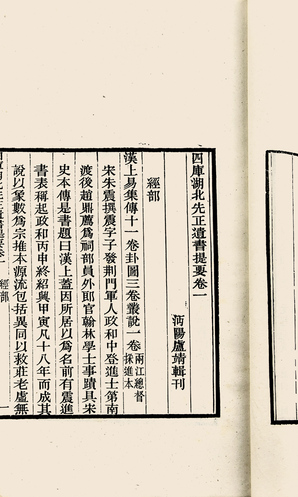 四庫湖北先正遺書提要卷一
沔陽盧靖輯刊
經部
漢上易集傳十一卷卦圖三卷叢說一卷兩江總督採進本
宋朱震撰震字子發荆門軍人政和中登進士第南
渡後趙鼎薦爲祠部員外郎官翰林學士事蹟具宋
史本傳是書題曰漢上蓋因所居以爲名前有震進
書表稱起政和丙申終紹興甲寅凡十八年而成其
說以象數爲宗推本源流包括異同以救莊老虛無
經部
一